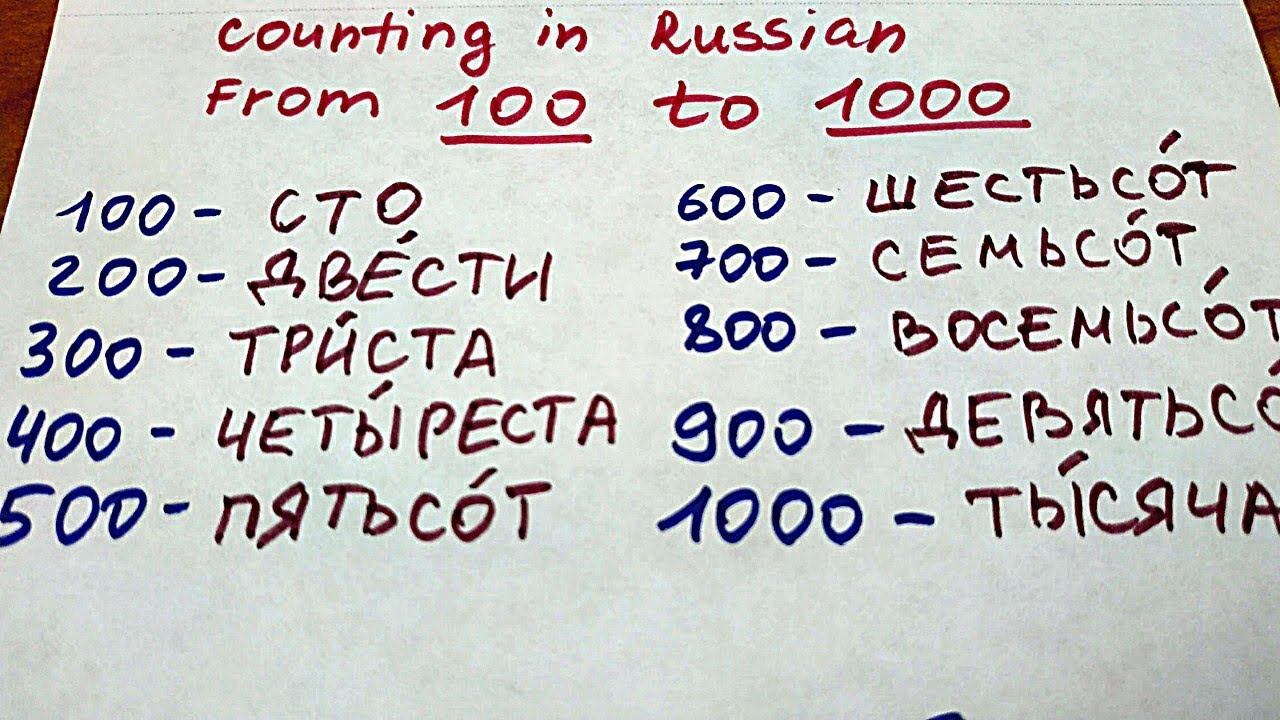 counting in Russian
From 100 to 1000
100 - СТО
200 - ДВЕ́СТИ
300 - ТРИ́СТА
400 - ЧЕТЫ́РЕСТА
500 - ПЯТЬСО́Т
600 - ШЕСТЬСО́Т
700 - СЕМЬСО́Т
800 - ВОСЕМЬСО́Т
900 - ДЕВЯТЬСО́
1000 - ТЫ́СЯЧА